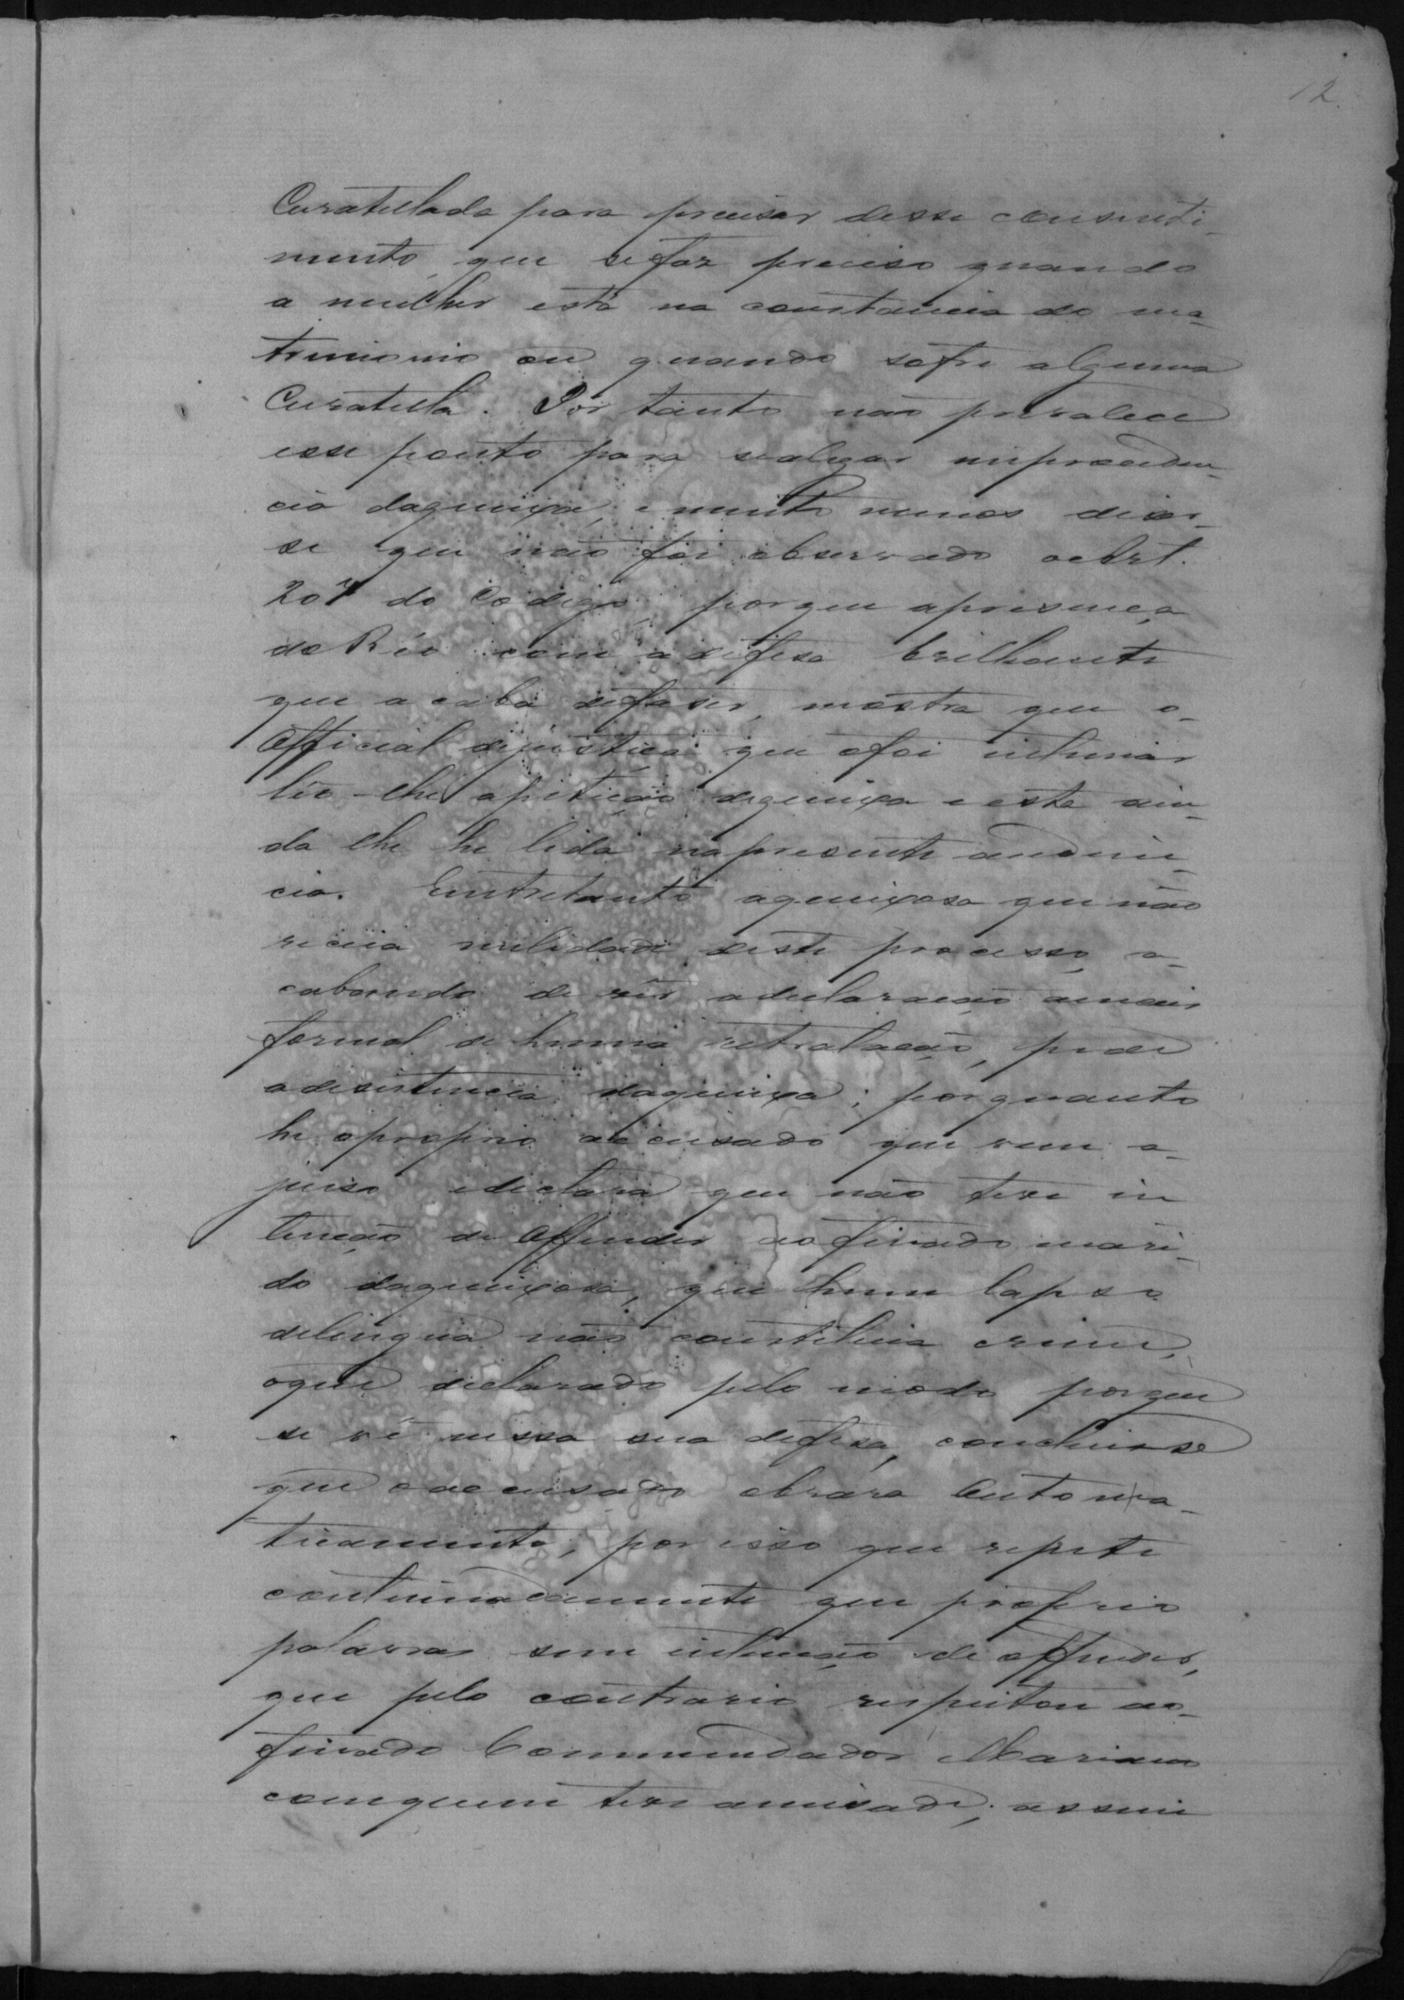 12
Curatellada para precisar desse consenti-
mento, que se faz preciso quando
a mulher está na constancia do ma-
trimonio ou quando sofre alguma
Curatella. Por tanto não prevalece
esse ponto para sealegar improceden-
cia daqueixa, e muito menos dizer-
se que não foi observado oArt.
207 do Codigo, porque apresença
do Réo com a defesa brilhante
que acaba defaser, mostra que o
Official dejustiça que ofoi intimar
lêo-lhe apetição dequeixa e esta ain-
da lhe he lida napresente audien-
cia. Entretanto aqueixosa que não
receia nulidade deste processo, a-
cabando de vêr adeclaração amais
formal de huma retratação, pede
adesistencia daqueixa; porquanto
he oproprio accusado que vem a
juiso edeclara que não teve in
tenção de offender ao finado mari-
do daqueixosa, que hum lapso
delingua não constituia crime,
oque declarado pelo modo porque
se vê nessa sua defesa, concluise
que oaccusado obrára automa-
ticamente, por isso que repete
continuadamente que proferio
palavras sem intenção de offender,
que pelo contrario respeitou ao
finado Commendador Mariano
comquem teve amisade; assim